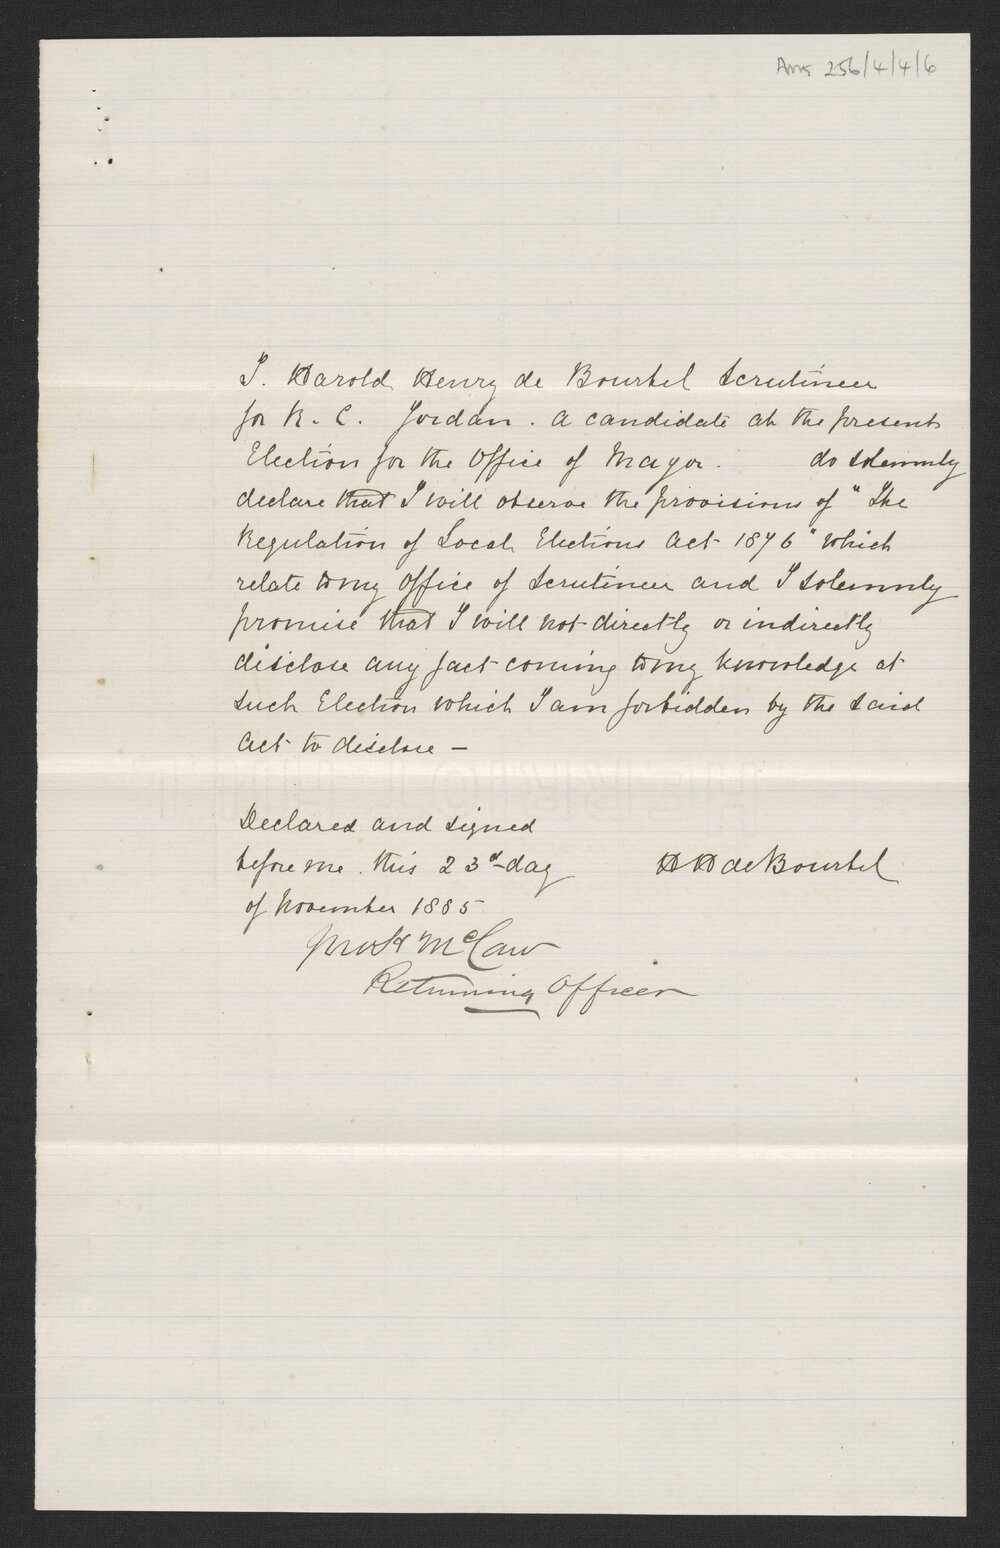 Ams 256/4/4/6
I. Harold Henry de Bourbel Scrutineer
for R. C. Jordan. a candidate at the present
Election for the Office of Mayor. do solemnly
declare that I will observe the provisions of "The
Regulation of Local Elections Act 1876" which
relate to my Office of Scrutineer and I solemnly
promise that I will not directly or indirectly
disclose any fact coming to my knowledge at
such Election which I am forbidden by the said
Act to disclose —
Declared and signed
before me. this 23d day
H H de Bourbel
of November 1885
McCaw
Returning Officer